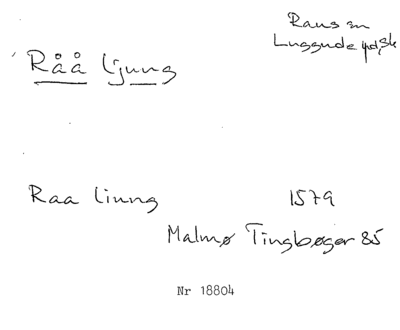 Raus sn
Luggude hd, Sk
Råå ljung
Raa liung 1579
Malmø Tingbøger 85
Nr 18804